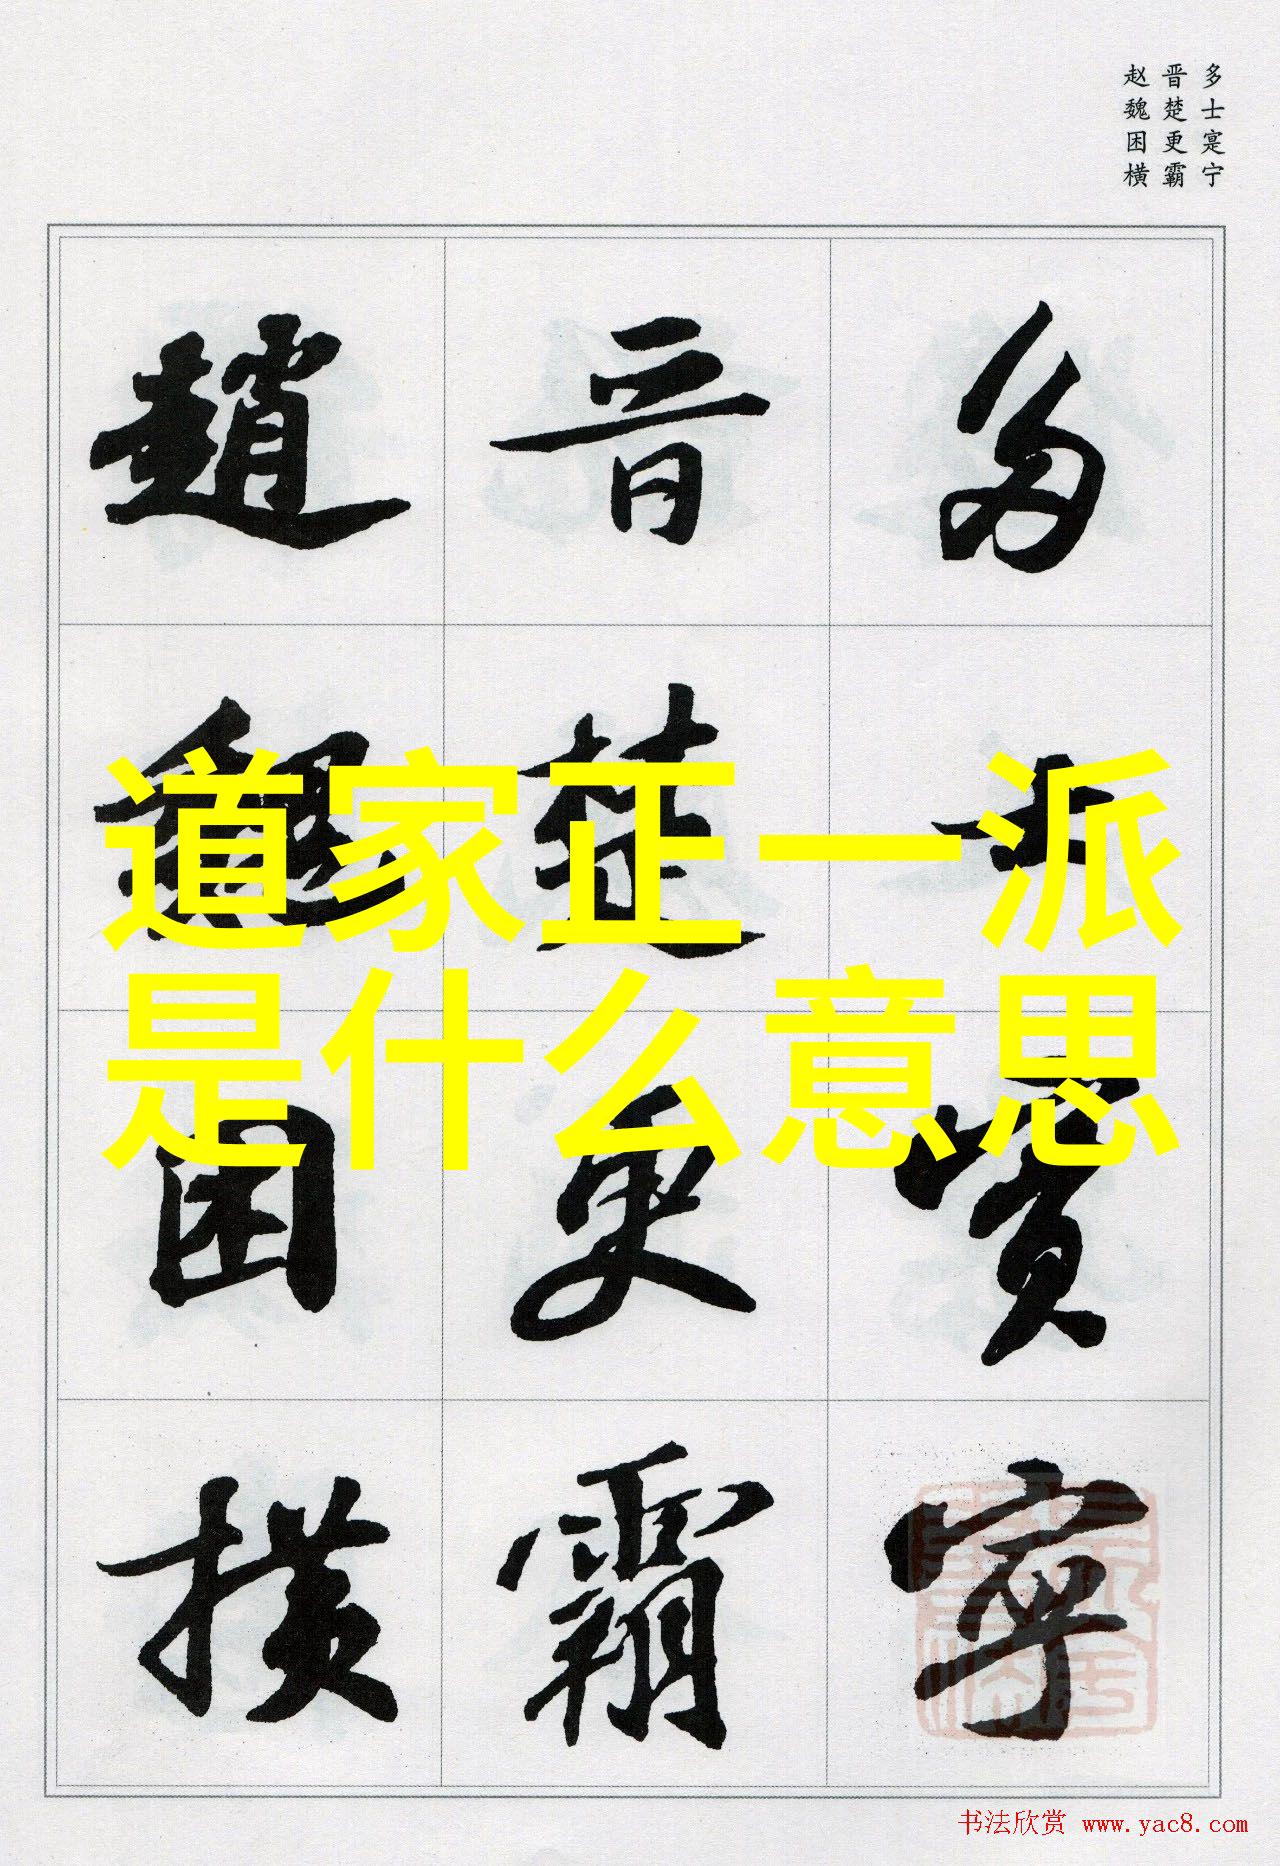 多士寔宁
晋楚更霸
赵魏困横
多士寔寧
晋楚更霸
趙魏困横
道家正一派
是什么意思
书法欣赏 www.yac8.com